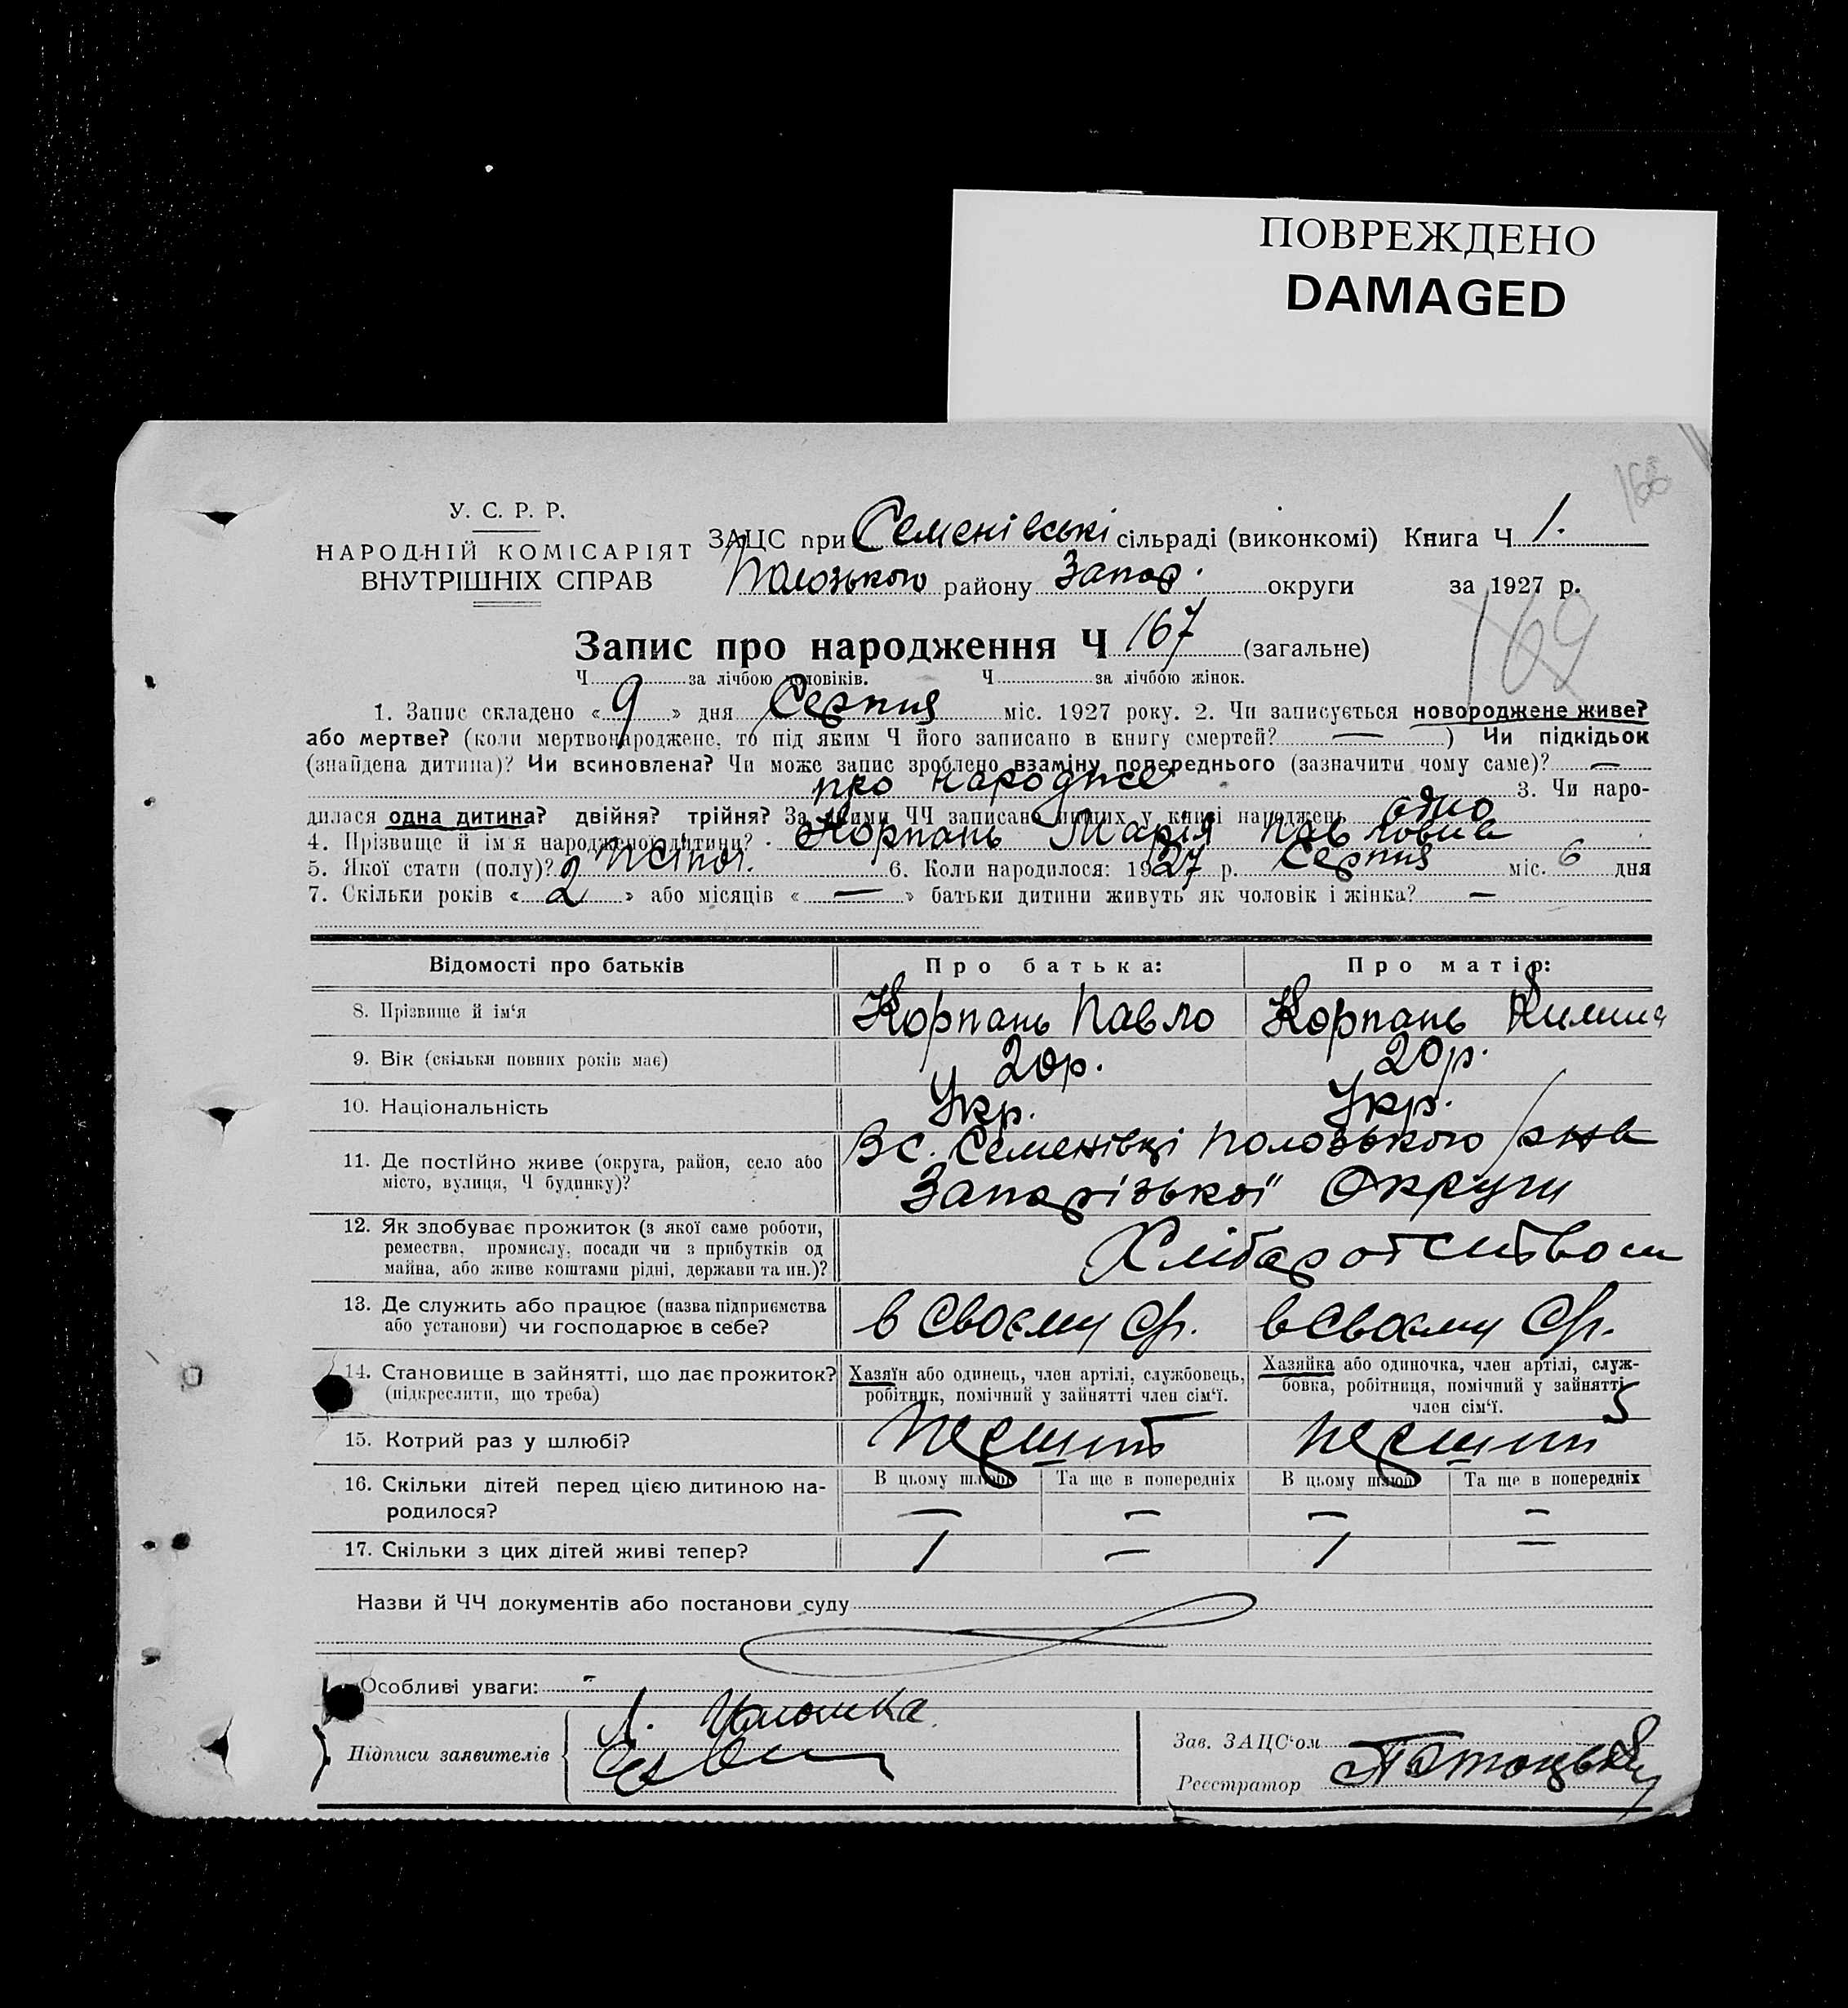 ПОВРЕЖДЕНО
DAMAGED
168
У. С. Р. Р.
НАРОДНІЙ КОМІСАРІЯТ
ВНУТРІШНІХ СПРАВ
ЗАЦС при Семенівські сільраді (виконкомі) Книга Ч 1.
Полозького району Запор. округи за 1927 р.
169
Запис про народження Ч 167 (загальне)
Ч за лічбою чоловіків. Ч за лічбою жінок.
1. Запис складено « 9 » дня Серпня міс. 1927 року. 2. Чи записується новороджене живе?
або мертве? (коли мертвонароджене, то під яким Ч його записано в книгу смертей? — ) Чи підкідьок
(знайдена дитина)? Чи всиновлена? Чи може запис зроблено взаміну попереднього (зазначити чому саме)? —
про народже 3. Чи наро-
дилася одна дитина? двійня? трійня? За якими ЧЧ записано инших у книзі народжень одно
4. Прізвище й ім'я народженої дитини? Корпань Марія Павловна
5. Якої стати (полу)? жіноч. 6. Коли народилося: 1927 р. Серпня міс. 6 дня
7. Скільки років « 2 » або місяців « — » батьки дитини живуть як чоловік і жінка? —
Відомості про батьків Про батька: Про матір:
8. Прізвище й ім'я Корпань Павло Корпань
9. Вік (скільки повних років має) 20р. 20р.
10. Національність Укр. Укр.
11. Де постійно живе (округа, район, село або
місто, вулиця, Ч будинку)?
В с. Семенівці Полозького р-на
Запорізької Округи
12. Як здобуває прожиток (з якої саме роботи,
ремества, промислу, посади чи з прибутків од
майна, або живе коштами рідні, держави та ин.)?
13. Де служить або працює (назва підприємства
або установи) чи господарює в себе?
в своєму в своєму
14. Становище в зайнятті, що дає прожиток?
(підкреслити, що треба)
Хазяїн або одинець, член артілі, службовець,
робітник, помічний у зайнятті член сім'ї.
Хазяйка або одиночка, член артілі, служ-
бовка, робітниця, помічний у зайнятті
член сім'ї.
15. Котрий раз у шлюбі?
16. Скільки дітей перед цією дитиною на-
родилося?
В цьому шлюбі Та ще в попередніх В цьому шлюбі Та ще в попередніх
— — — —
17. Скільки з цих дітей живі тепер? 1 — 1 —
Назви й ЧЧ документів або постанови суду
Особливі уваги: -
Підписи заявителів
Зав. ЗАЦС'ом
Реєстратор